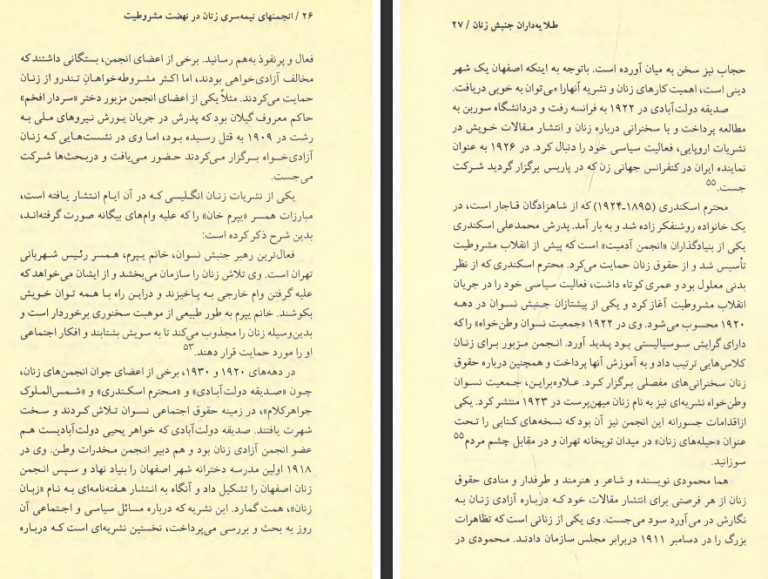 ۲۶ / انجمنهای نیمه‌سری زنان در نهضت مشروطیت
فعال و پرنفوذ به‌هم رسانید. برخی از اعضای انجمن، بستگانی داشتند که
مخالف آزادی‌خواهی بودند، اما اکثر مشروطه‌خواهان تندرو از زنان
حمایت می‌کردند. مثلاً یکی از اعضای انجمن مزبور دختر «سردار افخم»
حاکم معروف گیلان بود که پدرش در جریان یورش نیروهای ملی به
رشت در ۱۹۰۹ به قتل رسیده بود، اما وی در نشست‌هایی که زنان
آزادی‌خواه برگزار می‌کردند حضور می‌یافت و دربحث‌ها شرکت
می‌جست.
یکی از نشریات زنان انگلیسی که در آن ایام انتشار یافته است،
مبارزات همسر «یپرم خان» را که علیه وام‌های بیگانه صورت گرفته‌اند،
بدین شرح ذکر کرده است:
فعال‌ترین رهبر جنبش نسوان، خانم یپرم، همسر رئیس شهربانی
تهران است. وی تلاش زنان را سازمان می‌بخشد و از ایشان می‌خواهد که
علیه گرفتن وام خارجی به پاخیزند و دراین راه با همه توان خویش
بکوشند. خانم یپرم به طور طبیعی از موهبت سخنوری برخوردار است و
بدین‌وسیله زنان را مجذوب می‌کند تا به سویش بشتابند و افکار اجتماعی
او را مورد حمایت قرار دهند.۵۳
در دهه‌های ۱۹۲۰ و ۱۹۳۰، برخی از اعضای جوان انجمن‌های زنان،
چون «صدیقه دولت‌آبادی» و «محترم اسکندری» و «شمس‌الملوک
جواهرکلام»، در زمینه حقوق اجتماعی نسوان تلاش کردند و سخت
شهرت یافتند. صدیقه دولت‌آبادی که خواهر یحیی دولت‌آبادیست هم
عضو انجمن آزادی زنان بود و هم دبیر انجمن مخدرات وطن. وی در
۱۹۱۸ اولین مدرسه دخترانه شهر اصفهان را بنیاد نهاد و سپس انجمن
زنان اصفهان را تشکیل داد و آنگاه به انتشار هفته‌نامه‌ای به نام «زبان
زنان»، همت گمارد. این نشریه که درباره مسائل سیاسی و اجتماعی آن
روز به بحث و بررسی می‌پرداخت، نخستین نشریه‌ای است که درباره
طلایه‌داران جنبش زنان / ۲۷
حجاب نیز سخن به میان آورده است. باتوجه به اینکه اصفهان یک شهر
دینی است، اهمیت کارهای زنان و نشریه آنهارا می‌توان به خوبی دریافت.
صدیقه دولت‌آبادی در ۱۹۲۲ به فرانسه رفت و دردانشگاه سوربن به
مطالعه پرداخت و با سخنرانی درباره زنان و انتشار مقالات خویش در
نشریات اروپایی، فعالیت سیاسی خود را دنبال کرد. در ۱۹۲۶ به عنوان
نماینده ایران در کنفرانس جهانی زن که در پاریس برگزار گردید شرکت
جست.۵۵
محترم اسکندری (۱۸۹۵-۱۹۲۴) که از شاهزادگان قاجار است، در
یک خانواده روشنفکر زاده شد و به بار آمد. پدرش محمدعلی اسکندری
یکی از بنیادگذاران «انجمن آدمیت» است که پیش از انقلاب مشروطیت
تأسیس شد و از حقوق زنان حمایت می‌کرد. محترم اسکندری که از نظر
بدنی معلول بود و عمری کوتاه داشت، فعالیت سیاسی خود را در جریان
انقلاب مشروطیت آغاز کرد و یکی از پیشتازان جنبش نسوان در دهه
۱۹۲۰ محسوب می‌شود. وی در ۱۹۲۲ «جمعیت نسوان وطن‌خواه» را که
دارای گرایش سوسیالیستی بود پدید آورد. انجمن مزبور برای زنان
کلاس‌هایی ترتیب داد و به آموزش آنها پرداخت و همچنین درباره حقوق
زنان سخنرانی‌های مفصلی برگزار کرد. علاوه‌براین، جمعیت نسوان
وطن‌خواه نشریه‌ای نیز به نام زنان میهن‌پرست در ۱۹۲۳ منتشر کرد. یکی
ازاقدامات جسورانه این انجمن نیز آن بود که نسخه‌های کتابی را تحت
عنوان «حیله‌های زنان» در میدان توپخانه تهران و در مقابل چشم مردم۵۵
سوزانید.
هما محمودی نویسنده و شاعر و هنرمند و طرفدار و منادی حقوق
زنان از هر فرصتی برای انتشار مقالات خود که درباره آزادی زنان به
نگارش در می‌آورد سود می‌جست. وی یکی از زنانی است که تظاهرات
بزرگ را در دسامبر ۱۹۱۱ دربرابر مجلس سازمان دادند. محمودی در